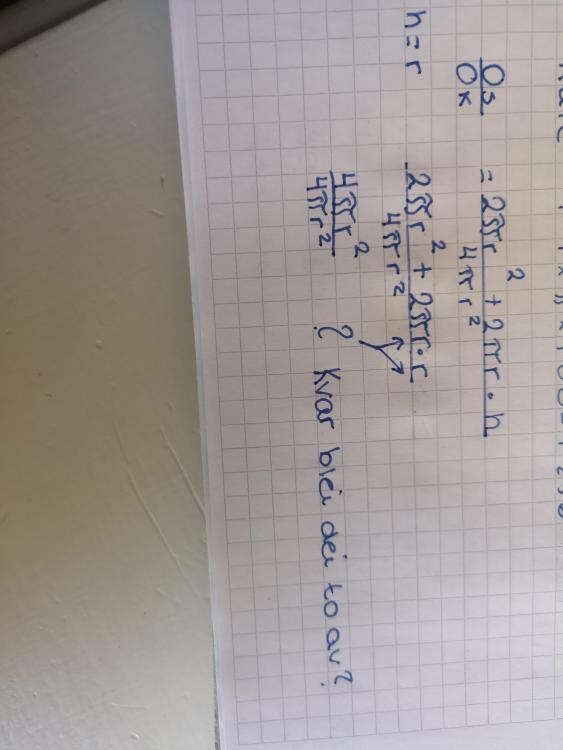 Os/Ok = (2πr² + 2πr·h)/(4πr²)
h = r (2πr² + 2πr·r)/(4πr²)
4πr²/4πr² ? Kvar blei dei to av?